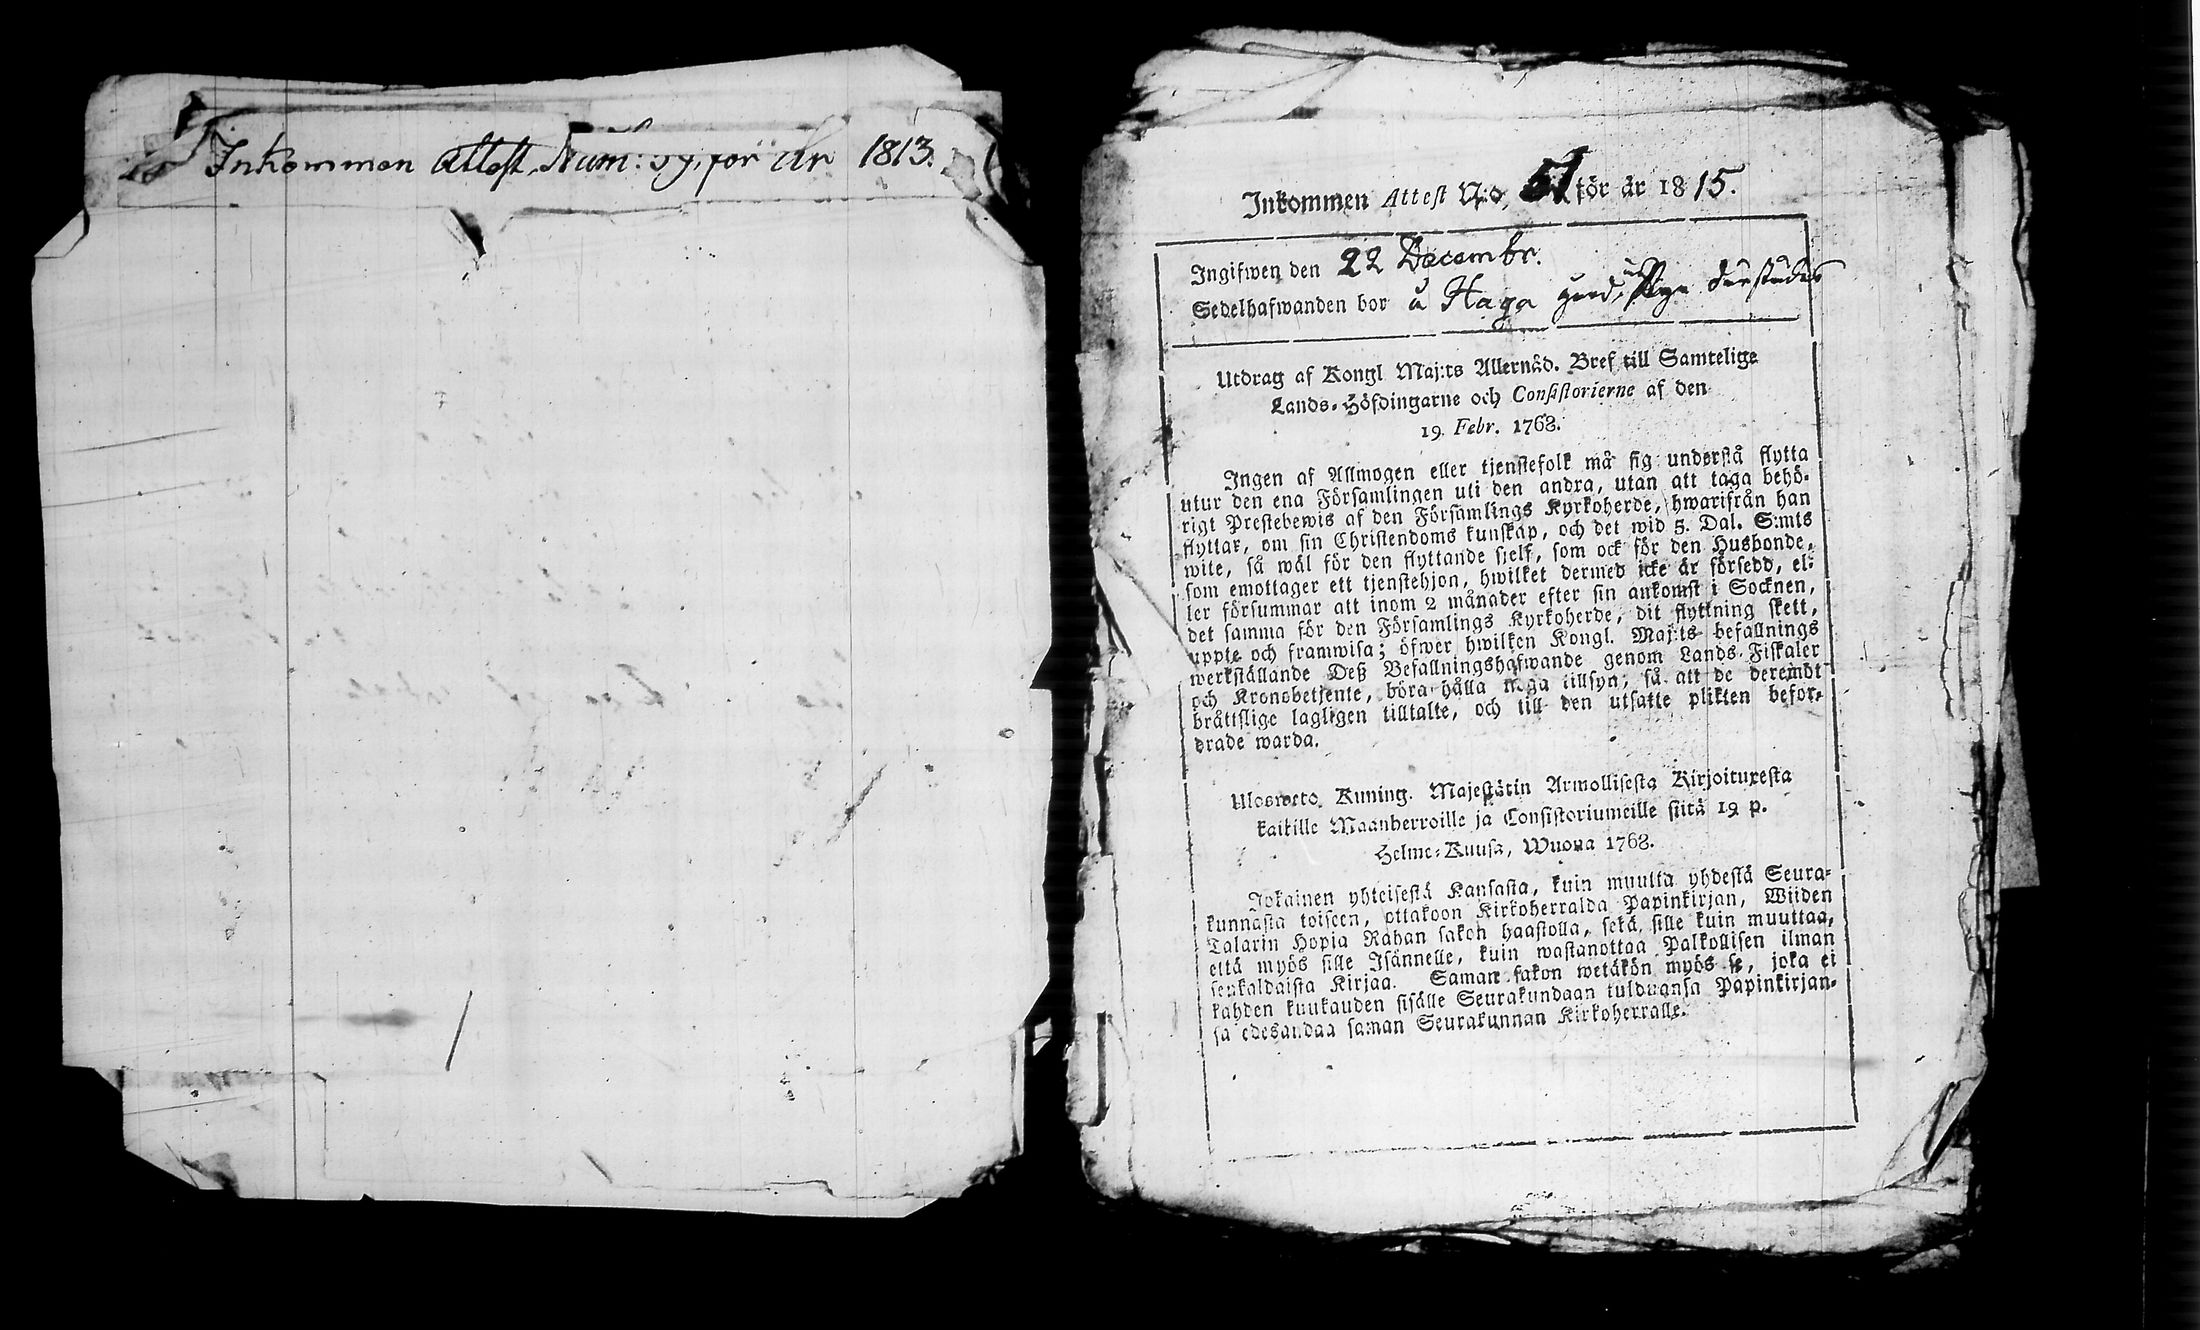 Inkommen Attest, Num: 59, för År 1813.
Inkommen Attest N:o, 51 för år 1815.
Ingifwen den 22 Decembr.
Sedelhafwanden bor å Haga gård,
Utdrag af Kongl Maj:ts Allernåd. Bref till Samtelige
Lands-Höfdingarne och Consistorierne af den
19 Febr. 1768.
Ingen af Allmogen eller tjenstefolk må sig understå flytta
utur den ena Församlingen uti den andra, utan att taga behö-
rigt Prestebewis af den Församlings Kyrkoherde, hwarifrån han
flyttar, om sin Christendoms kunskap, och det wid 5. Dal. S:mts
wite, så wäl för den flyttande sjelf, som ock för den Husbonde,
som emottager ett tjenstehjon, hwilket dermed icke är försedd, el-
ler försummar att inom 2 månader efter sin ankomst i Socknen,
det samma för den Församlings Kyrkoherde, dit flyttning skett,
uppte och framwisa; öfwer hwilken Kongl. Maj:ts befallnings
werkställande Deß Befallningshafwande genom Lands-Fiskaler
och Kronobetjente, böra hålla noga tillsyn, så att de deremot
bråttslige lagligen tilltalte, och till den utsatte plikten befor-
drade warda.
Ulosweto Kuning. Majestätin Armollisesta Kirjoituxesta
kaikille Maanherroille ja Consistoriumeille siitä 19 p.
Helme-Kuusa, Wuona 1768.
Jokainen yhteisestä Kansasta, kuin muutta yhdestä Seura-
kunnasta toiseen, ottakoon Kirkoherralda Papinkirjan, Wiiden
Talarin Hopia Rahan sakon haastolla, sekä sille kuin muuttaa,
että myös sille Isännelle, kuin wastanottaa Palkollisen ilman
senkaldaista Kirjaa. Saman sakon wetäkön myös se, joka ei
kahden kuukauden sisälle Seurakundaan tulduansa Papinkirjan-
sa edesandaa saman Seurakunnan Kirkoherralle.